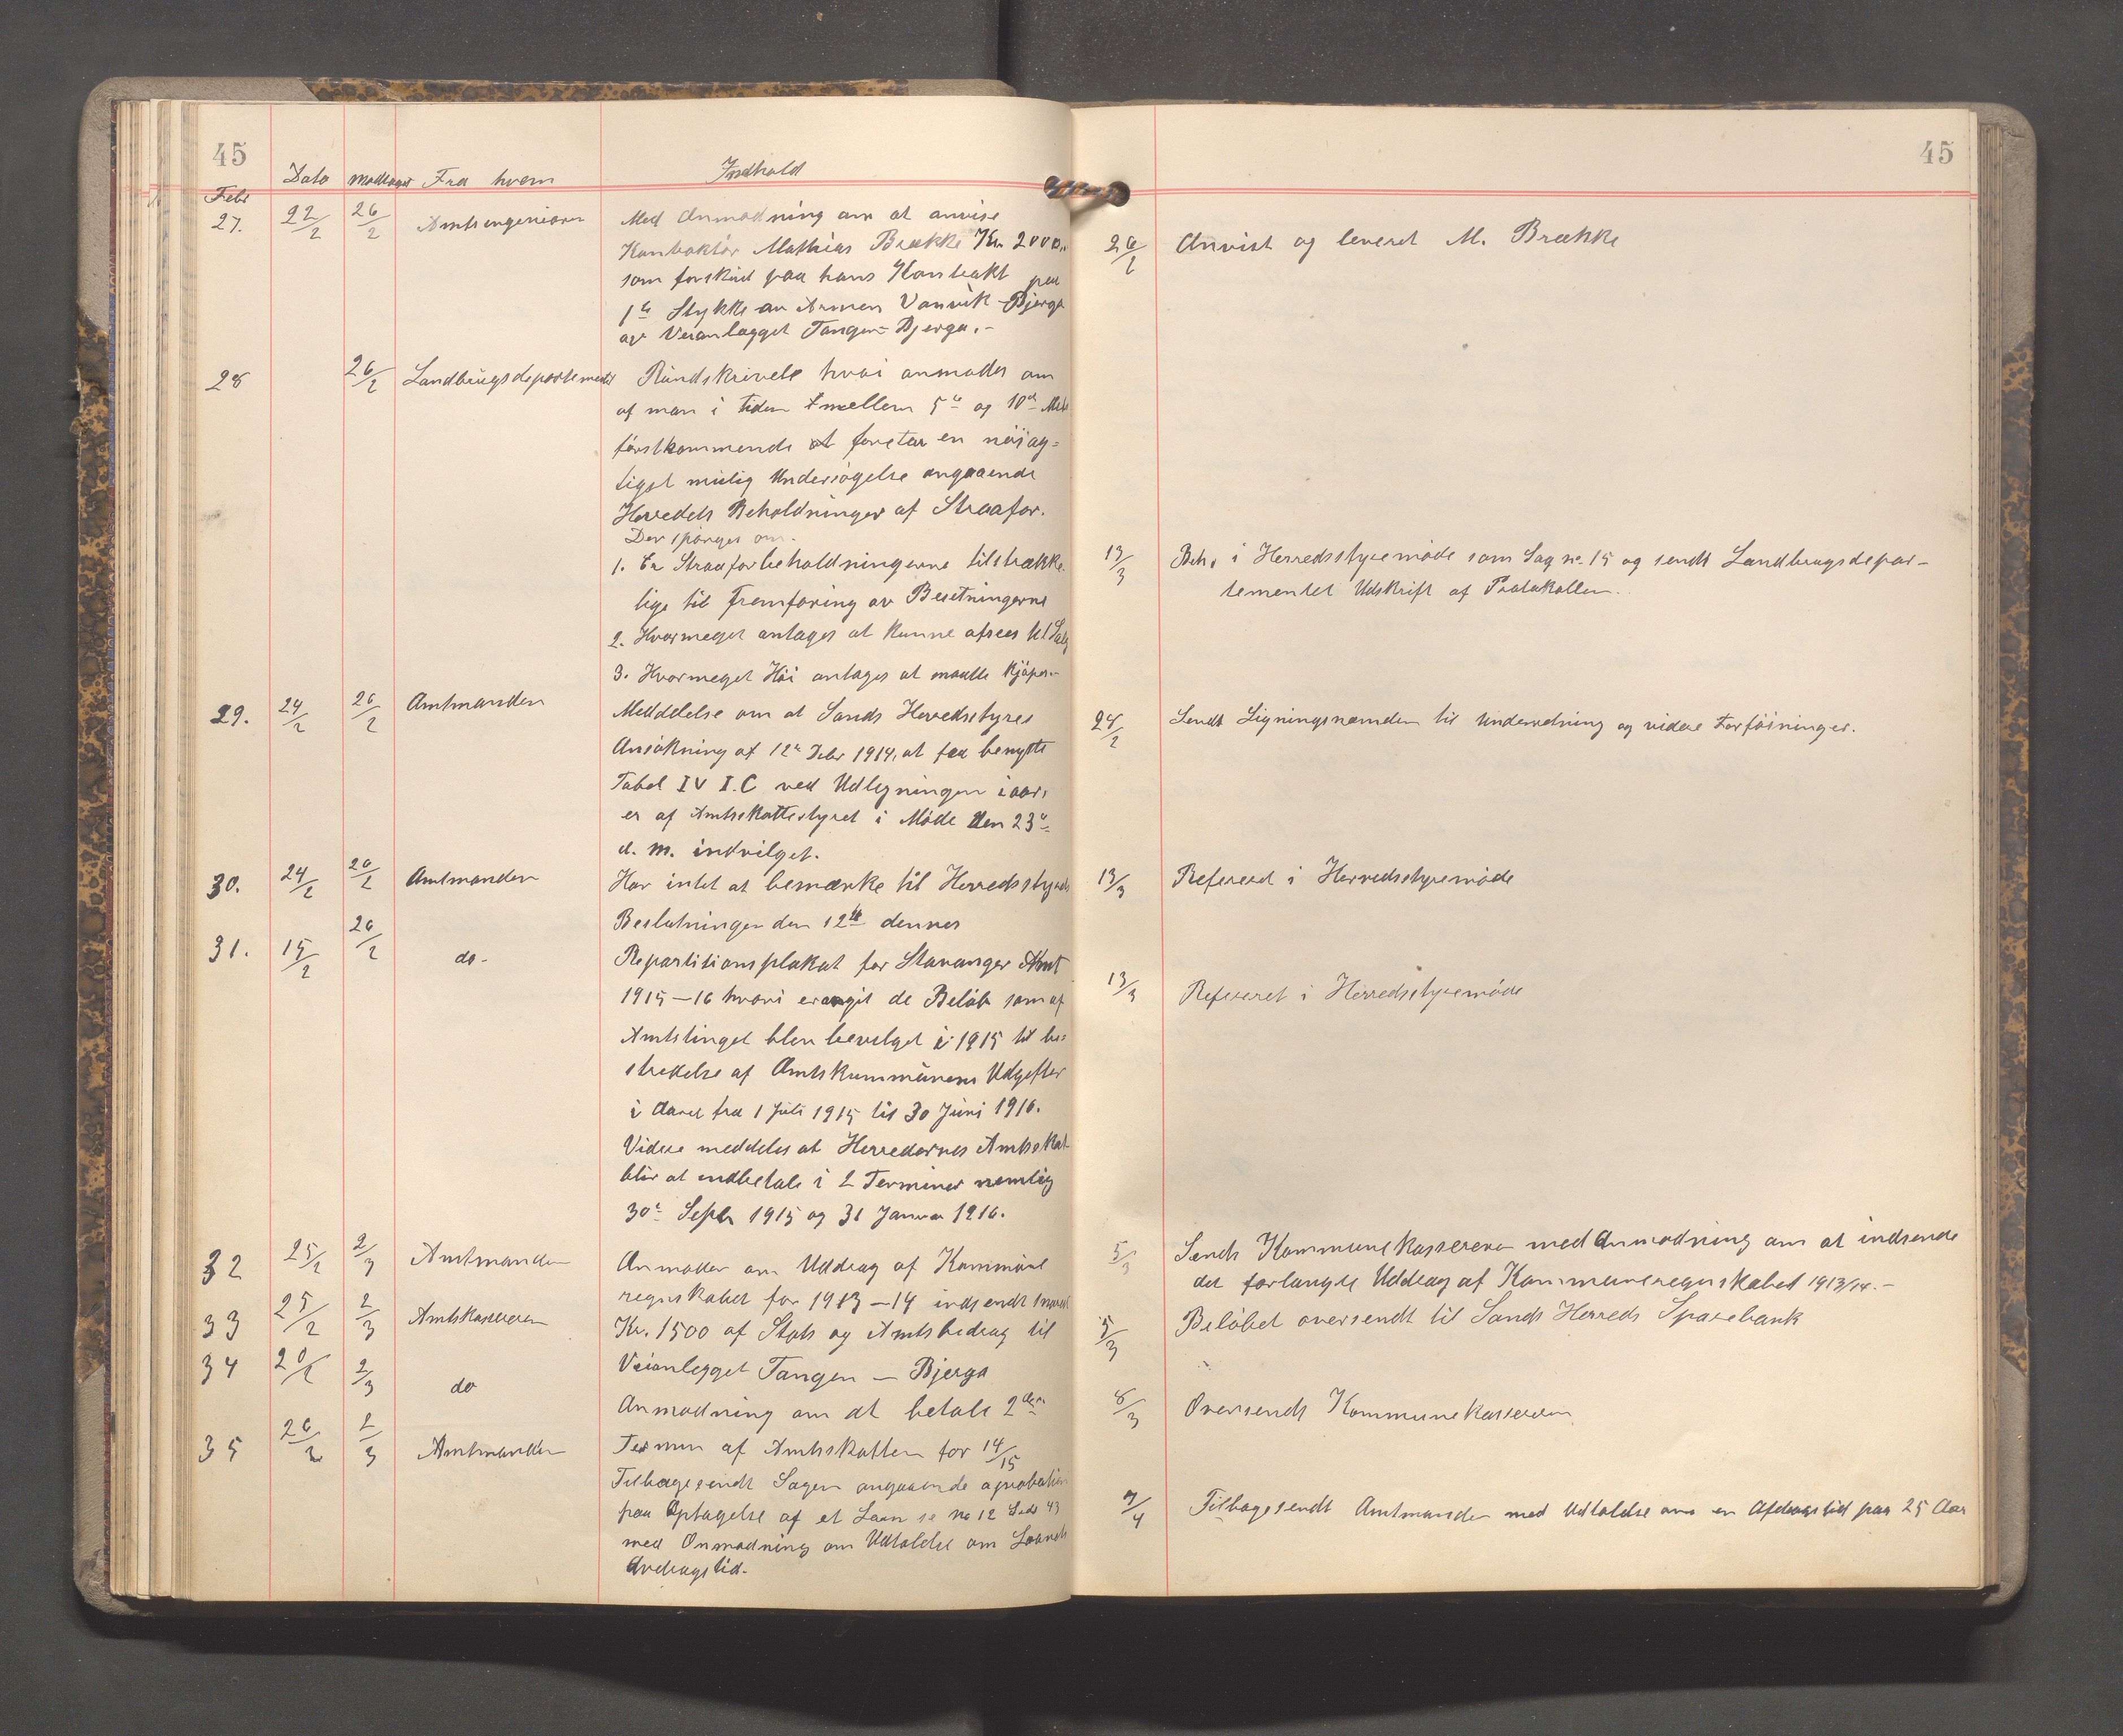 45
Febr Dato modtaget Fra hvem Indhold
27. 22/2 26/2 Amtsingeniøren Med Anmodning om at anvise
Kontraktør Mathias Brække Kr 2000,-
som forskud paa hans Kontrakt paa
1ste Stykke av Armen Vanvik-Bjerga
av Veianlægget Tangen-Bjerga.-
28 26/2 Landbrugsdepartementet Rundskrivelse hvori anmodes om
at man i tiden mellem 5te og 10de Mars
førstkommende foretar en nøiag-
tigst mulig Undersøgelse angaaende
Herredets Beholdninger af Straafor.
Der spørges om.
1. Er Straaforbeholdningerne tilstrække-
lige til Fremforing av Besetningerne
2. Hvormeget antages at kunne afsees til Salg
3. Hvormeget Høi antages at maatte kjøpes-
29. 24/2 26/2 Amtmanden Meddelelse om at Sands Herredsstyres
Ansøkning af 12te Debr 1914, at faa benytte
Tabel IV I.C ved Udligningen iaar,
er af Amtsskattestyret i Møde den 23de
d. m. indvilget.
30. 24/2 26/2 Amtmanden Har intet at bemærke til Herredsstyrets
Beslutninger den 12te dennes
31. 15/2 26/2 do- Repartitionsplakat for Stavanger Amt
1915-16 hvori er angit de Beløb som af
Amtstinget blev bevilget i 1915 til be-
stridelse af Amtskommunens Udgifter
i Aaret fra 1 Juli 1915 til 30 Juni 1916.
Videre meddeles at Herredernes Amtsskat
blir at indbetale i 2 Terminer nemlig
30te Septr 1915 og 31 Januar 1916.
32 25/2 2/3 Amtmanden Anmoder om Uddrag af Kommune
regnskabet for 1913-14 indsendt snarest
33 25/2 2/3 Amtskassereren Kr. 1500 af Stats og Amtsbidrag til
Veianlegget Tangen - Bjerga
34 20/2 2/3 do Anmodning om at betale 2den
Termin af Amtsskatten for 14/15
35 26/2 2/3 Amtmanden Tilbagesendt Sagen angaaende aprobation
paa Optagelse af et Laan se No 12 Side 43
med Anmodning om Udtalelse om Laanets
Avdragstid.
45
26/2 Anvist og leveret M. Brække
13/3 Beh. i Herredsstyremøde som Sag no. 15 og sendt Landbrugsdepar-
tementet Udskrift af Protokollen.
24/2 Sendt Ligningsnævnden til Underretning og videre Forføininger.
13/3 Refereret i Herredsstyremøde
13/3 Refereret i Herredsstyremøde
5/3 Sendt Kommunekassereren med Anmodning om at indsende
det forlangte Uddrag af Kommuneregnskabet 1913/14.-
5/3 Beløbet oversendt til Sands Herreds Sparebank
8/3 Oversendt Kommunekassereren
7/4 Tilbagesendt Amtmanden med Udtalelse om en Afdragstid paa 25 Aar